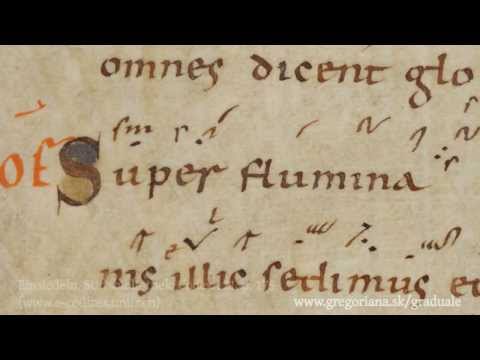 omnes dicent glo
of Super flumina
nis illic sedimus et
Einsiedeln, 
(www.e-codices.unifr.ch)
www.gregoriana.sk/graduale